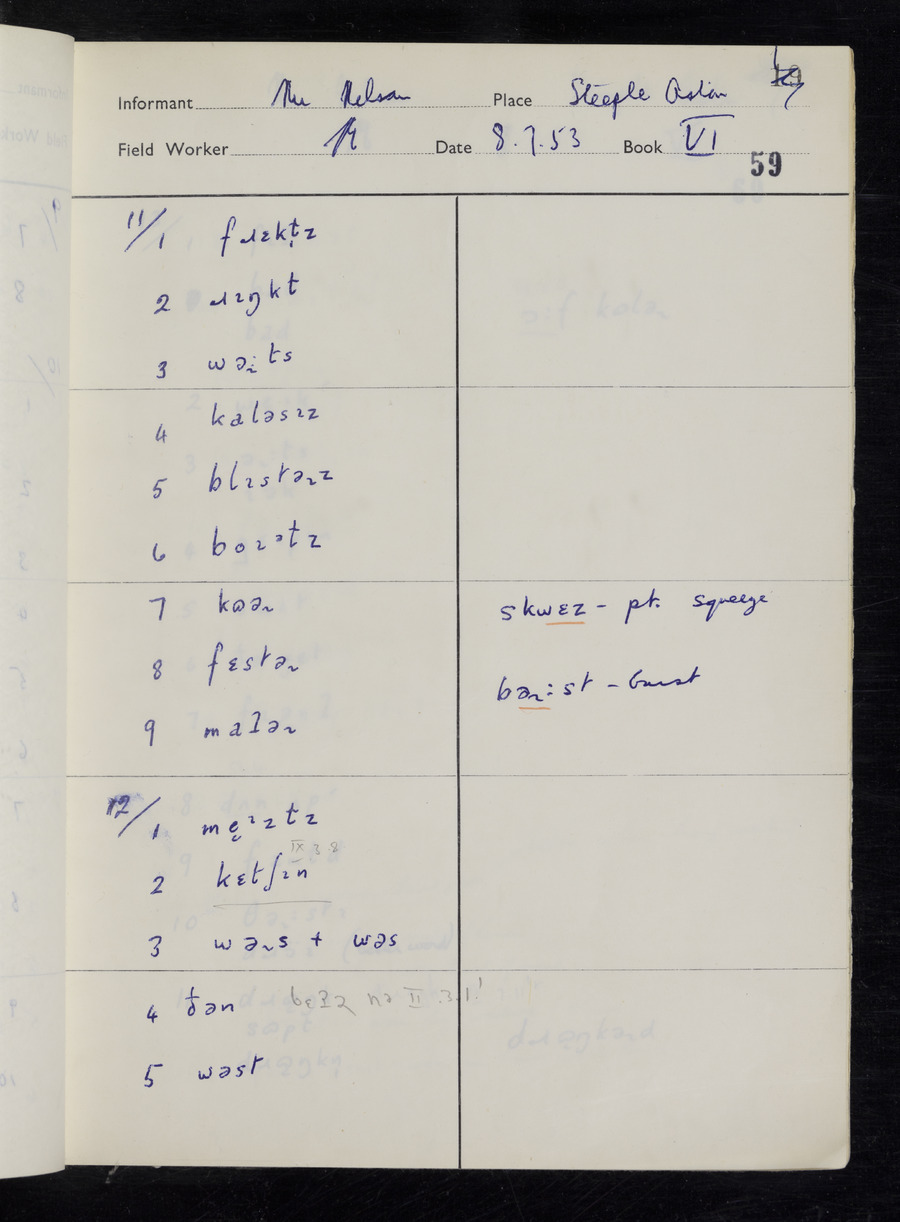 Informant Mr Nelson Place Steeple Aston
Field Worker Date 8.7.53 Book VI
59
11/1 fɹɛktz
2 ɹɪŋkt
3 wəits
4 kaləsɪz
5 blɪstəɹz
6 boɪətz
7 kɒəɹ skwɛz - pt. squeeze
8 fɛstəɹ
bəɹ:st - burst
9 matəɹ
12/1
IX 3 8
2 kɛtʃɪn
3 wəɹs + wəs
4 ðən II .3.1!
5 wəst